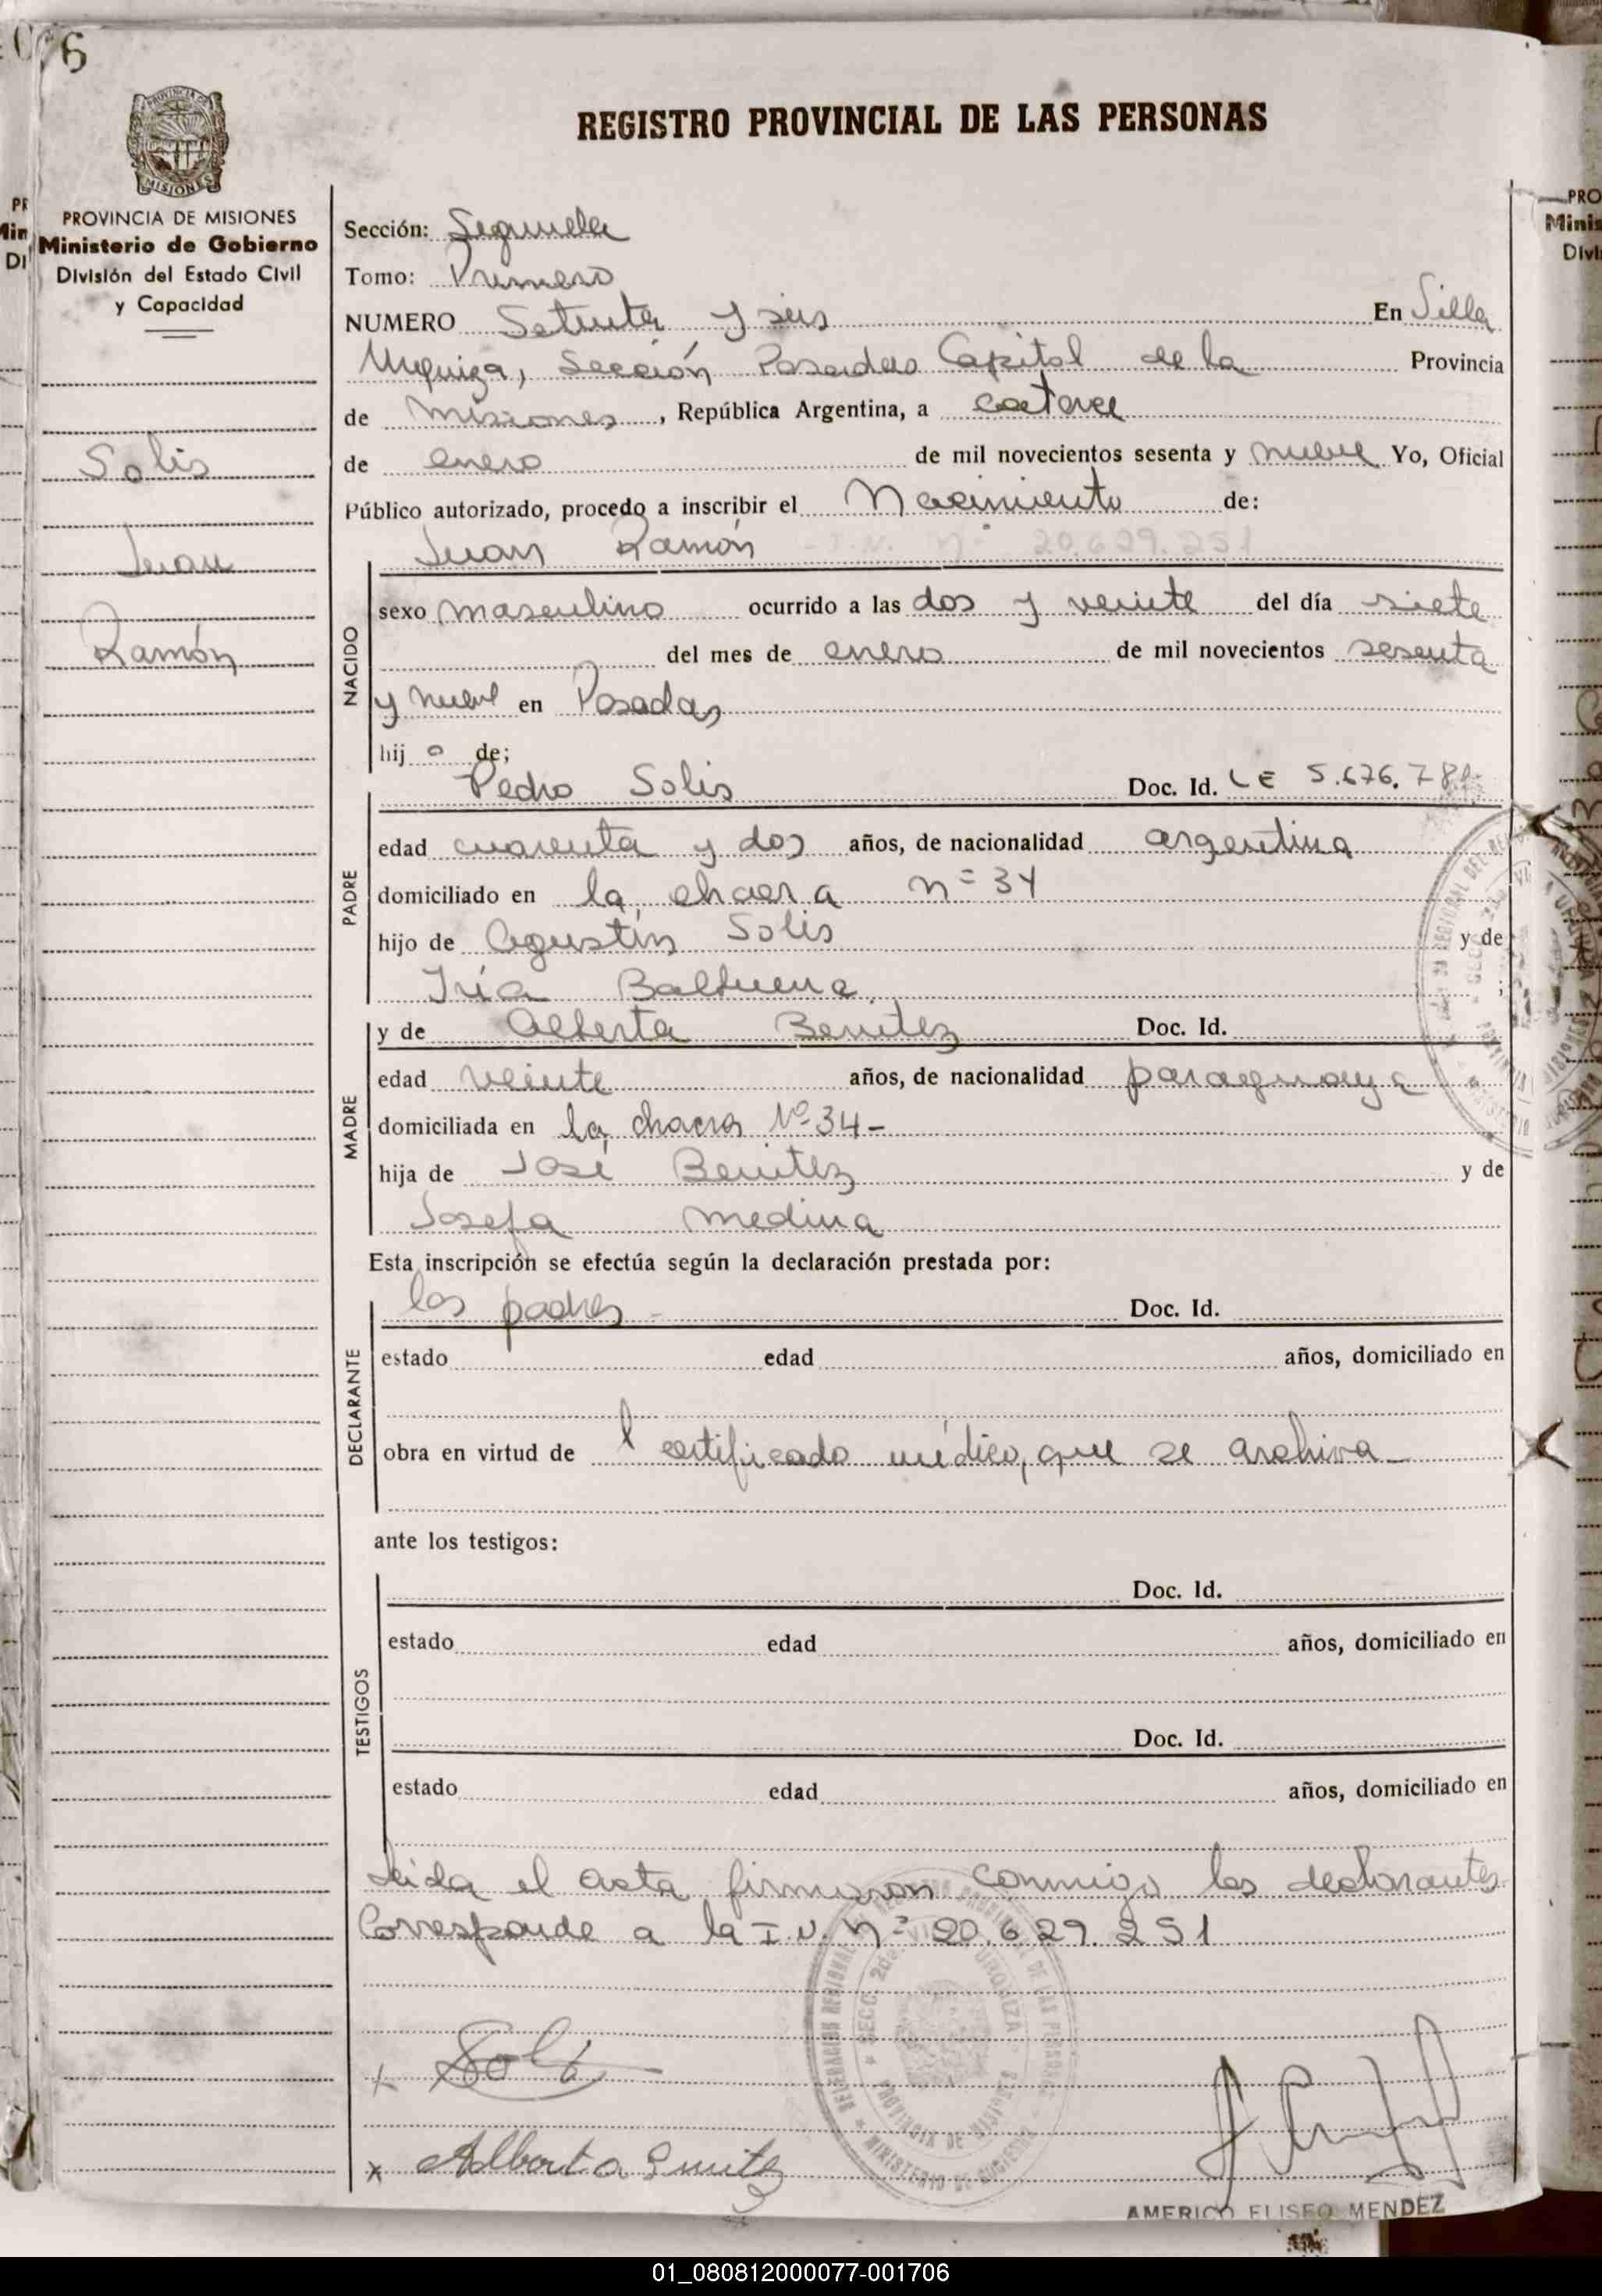 76
PROVINCIA DE MISIONES
Ministerio de Gobierno
División del Estado Civil
y Capacidad
Solis
Juan
Ramón
REGISTRO PROVINCIAL DE LAS PERSONAS
Sección: Segunda
Tomo: Primero
NUMERO Setenta y seis En Villa
Urquiza, Sección Posadas Capital de la Provincia
de Misiones, República Argentina, a catorce
de enero de mil novecientos sesenta y nueve Yo, Oficial
Público autorizado, procedo a inscribir el Nacimiento de:
Juan Ramón I.N. Nº 20.629.251
NACIDO
sexo masculino ocurrido a las dos y veinte del día siete
del mes de enero de mil novecientos sesenta
y nueve en Posadas
hij o de;
Pedro Solis Doc. Id. LE 5.676.781
PADRE
edad cuarenta y dos años, de nacionalidad argentina
domiciliado en la chacra nº 34
hijo de Agustín Solis y de
Balbuena ;
y de Alberta Benitez Doc. Id.
MADRE
edad veinte años, de nacionalidad paraguaya
domiciliada en la chacra Nº 34-
hija de José Benitez y de
Josefa Medina
Esta inscripción se efectúa según la declaración prestada por:
los padres - Doc. Id.
DECLARANTE
estado edad años, domiciliado en
obra en virtud de l certificado médico, que se archiva-
ante los testigos:
Doc. Id.
TESTIGOS
estado edad años, domiciliado en
Doc. Id.
estado edad años, domiciliado en
Leida el acta firmaron conmigo los declarantes
Corresponde a la I.N. nº 20.629.251
x Solis
x Alberta Benitez
AMERICO ELISEO MENDEZ
01_080812000077-001706